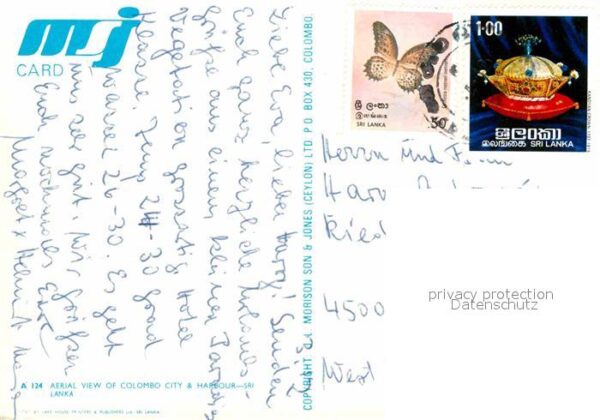 msj
CARD
Liebe Eva, lieber Harry! Senden
Euch ganz herzliche Urlaubs-
Grüße aus einem kleinen Paradies
Vegetation grossartig Hotel
Temp 24-30 Grad
Wasser 26-30. Es geht
uns sehr gut. Wir grüßen
Euch nochmals
Margret + Helmut
COPYRIGHT MORISON SON & JONES (CEYLON) LTD. P.O BOX 430, COLOMBO.
A 124 AERIAL VIEW OF COLOMBO CITY & HARBOUR—SRI
LANKA
LAKE HOUSE PRINTERS & PUBLISHERS LTD. SRI LANKA.
ශ්‍රී ලංකා
இலங்கை
SRI LANKA
50
1·00
ශ්‍රී ලංකා
இலங்கை SRI LANKA
Herrn und
Ried
4500
West
privacy protection
Datenschutz